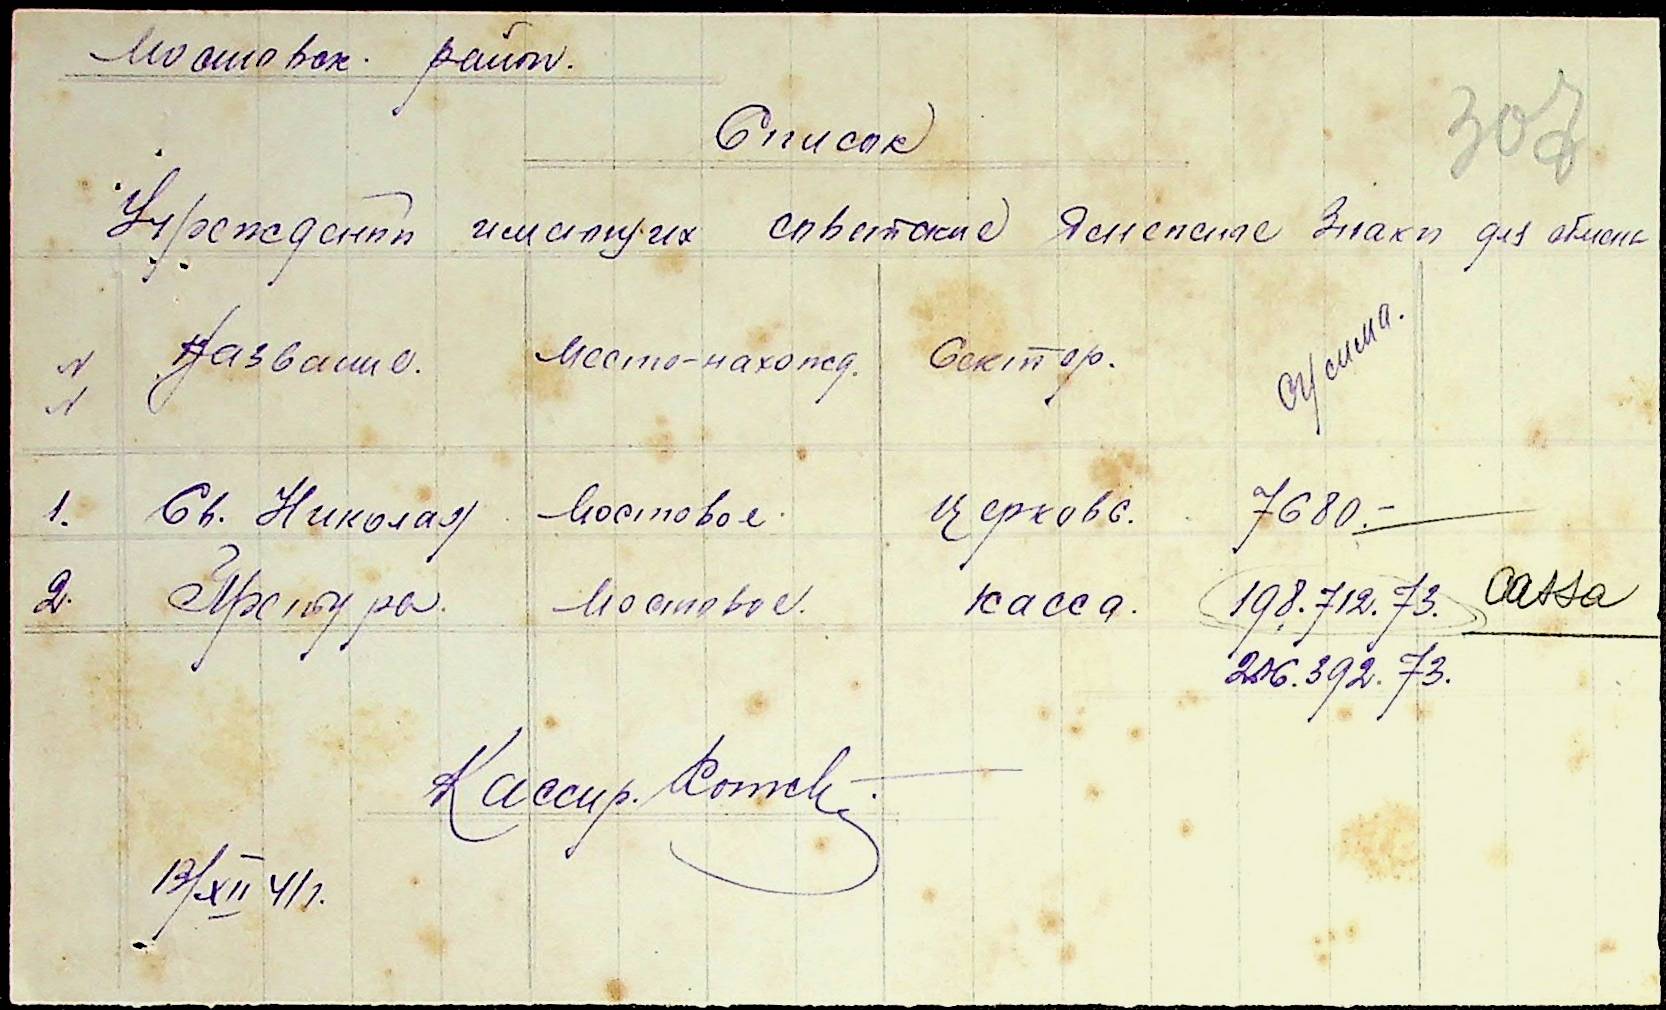 Мостовск. район.
307
Список
Учреждений имеющих советские денежные знаки для обмена
NN Название. Место-нахожд. Сектор. сумма.
1. Св. Николая Мостовое. Церковь. 7680.-
2. Претура. Мостовое. касса. 198.712.73. cassa
206.392.73.
Кассир.
13/XII 41г.